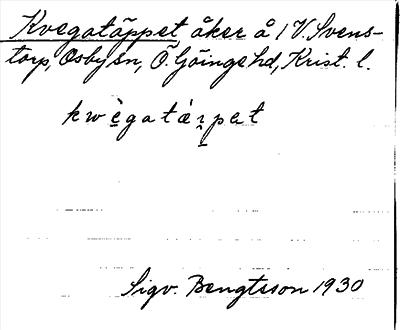 Kvegatäppet åker å 1 V. Svens-
torp, Osby sn, Ö. Göinge hd, Krist. l.
kwègatæ̀ı̨pet
Sigv. Bengtsson 1930